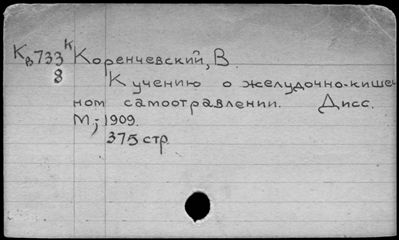 Кв733 к Коренчевский, В.
8
К учению о желудочно-кишеч
ном самоотравлении. Дисс.
М; 1909.
375 стр.